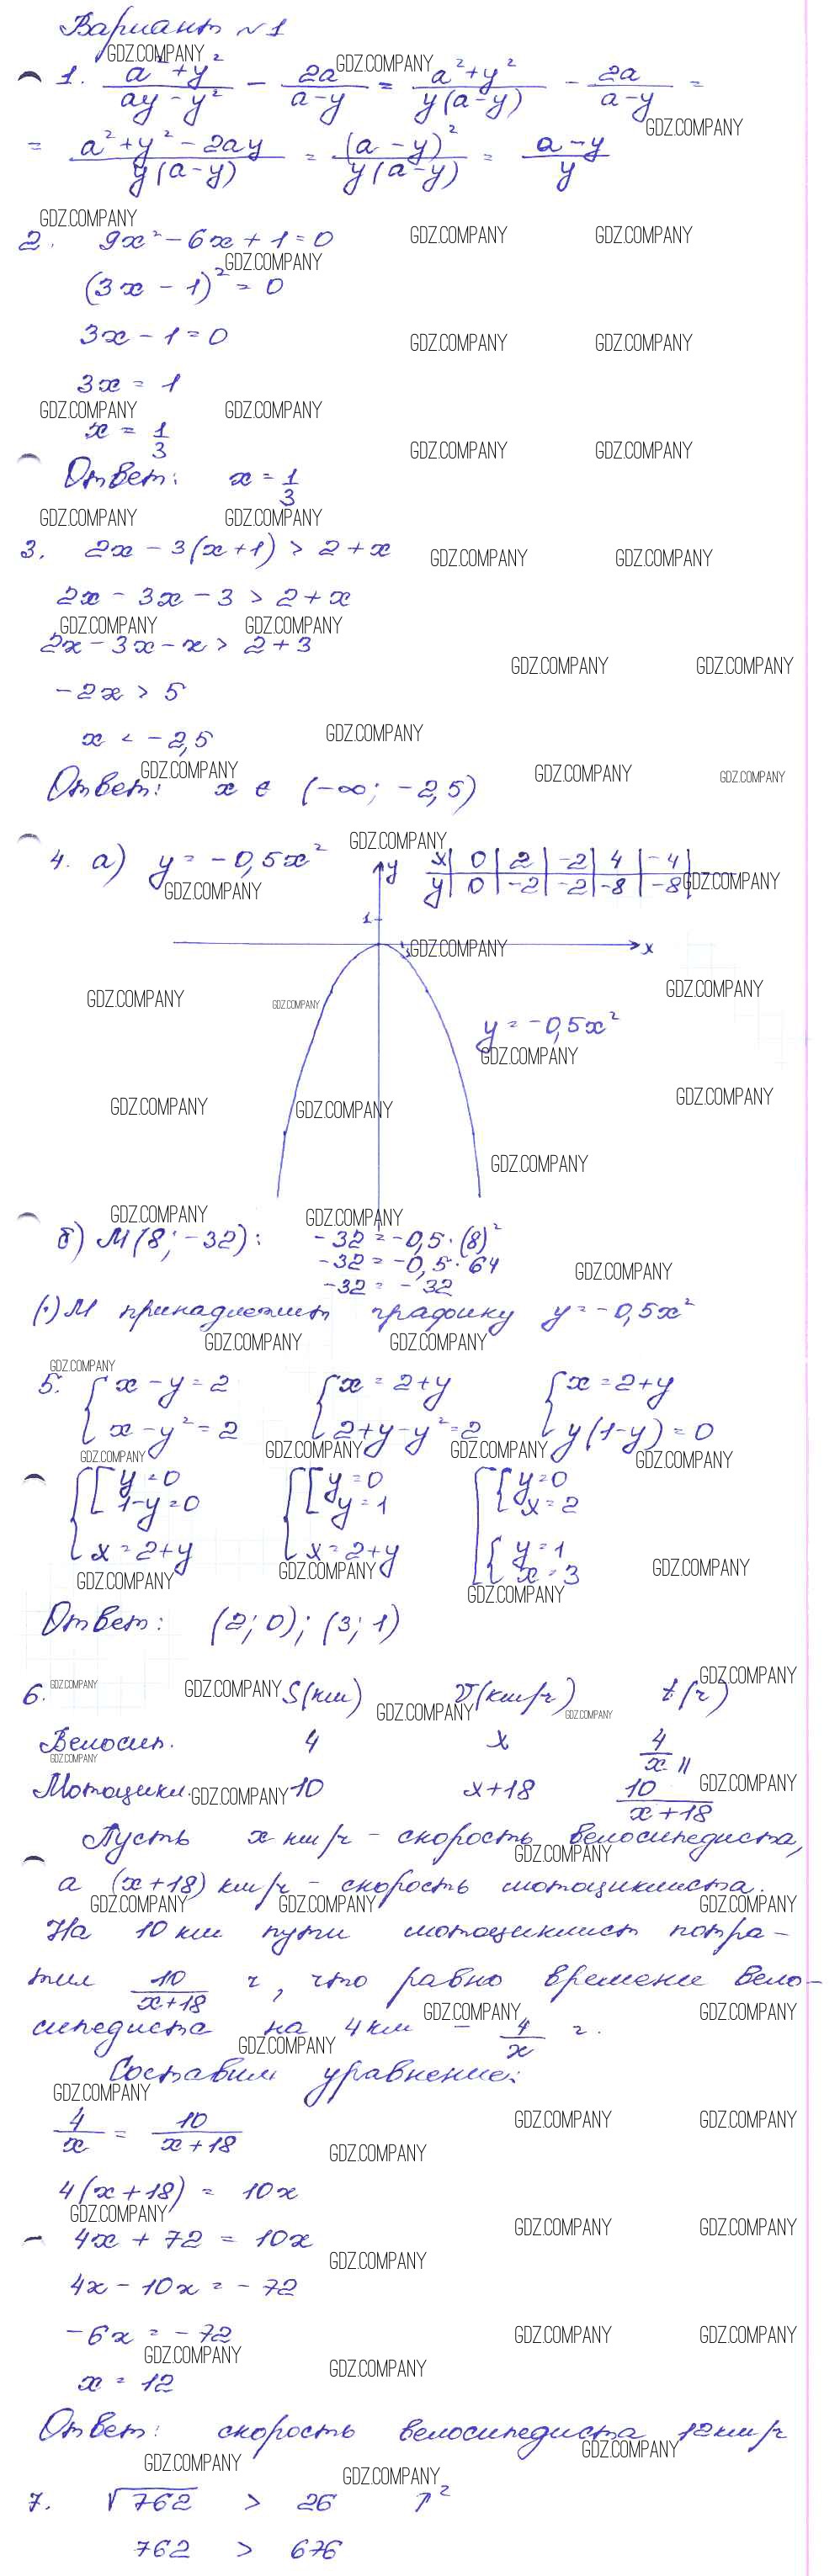 Вариант №1
1. (a² + y²)/(ay − y²) − 2a/(a − y) = (a² + y²)/(y(a − y)) − 2a/(a − y) =
= (a² + y² − 2ay)/(y(a − y)) = (a − y)²/(y(a − y)) = (a − y)/y
2. 9x² − 6x + 1 = 0
(3x − 1)² = 0
3x − 1 = 0
3x = 1
x = 1/3
Ответ: x = 1/3
3. 2x − 3(x + 1) > 2 + x
2x − 3x − 3 > 2 + x
2x − 3x − x > 2 + 3
−2x > 5
x < −2,5
Ответ: x ∈ (−∞; −2,5)
4. а) y = −0,5x²
x | 0 | 2 | −2 | 4 | −4 |
y | 0 | −2 | −2 | −8 | −8 |
y
1
1
x
y = −0,5x²
б) М(8; −32): −32 = −0,5 · (8)²
−32 = −0,5 · 64
−32 = −32
(·) М принадлежит графику y = −0,5x²
5. { x − y = 2 { x = 2 + y { x = 2 + y
x − y² = 2 2 + y − y² = 2 y(1 − y) = 0
{ [ y = 0 { [ y = 0 [ { y = 0
1 − y = 0 y = 1 x = 2
x = 2 + y x = 2 + y { y = 1
x = 3
Ответ: (2; 0); (3; 1)
6. S(км) V(км/ч) t(ч)
Велосип. 4 x 4/x
Мотоцикл. 10 x + 18 10/(x + 18)
Пусть x км/ч − скорость велосипедиста,
а (x + 18) км/ч − скорость мотоциклиста.
На 10 км пути мотоциклист потра-
тил 10/(x + 18) ч, что равно времени вело-
сипедиста на 4 км − 4/x ч.
Составим уравнение:
4/x = 10/(x + 18)
4(x + 18) = 10x
4x + 72 = 10x
4x − 10x = −72
−6x = −72
x = 12
Ответ: скорость велосипедиста 12 км/ч
7. √762 > 26 ↑²
762 > 676
GDZ.COMPANY